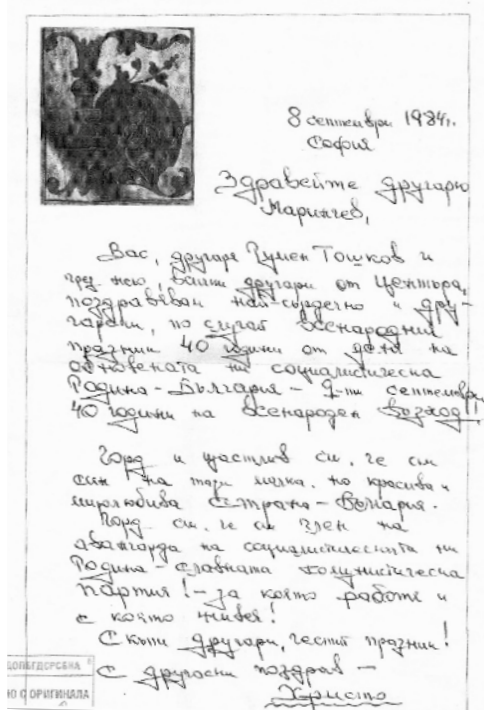 8 септември 1984г.
София
Здравейте другарю
Маринчев,
Вас, другаря Румен Тошков и
чрез него, всички другари от Центъра,
поздравявам най-сърдечно и дру-
гарски, по случай всенародния
празник 40 години от деня на
обновената ни социалистическа
Родина - България - 9-ти септември,
40 години на всенароден възход!
Горд и щастлив съм, че съм
син на тази малка, но красива и
миролюбива страна - България.
Горд съм, че съм член на
авангарда на социалистическата ни
Родина - славната комунистическа
партия! - за която работя и
с която живея!
Скъпи другари, честит празник!
С другарски поздрав -
Христо
КОПБГДСРСБНА
Ю С ОРИГИНАЛА